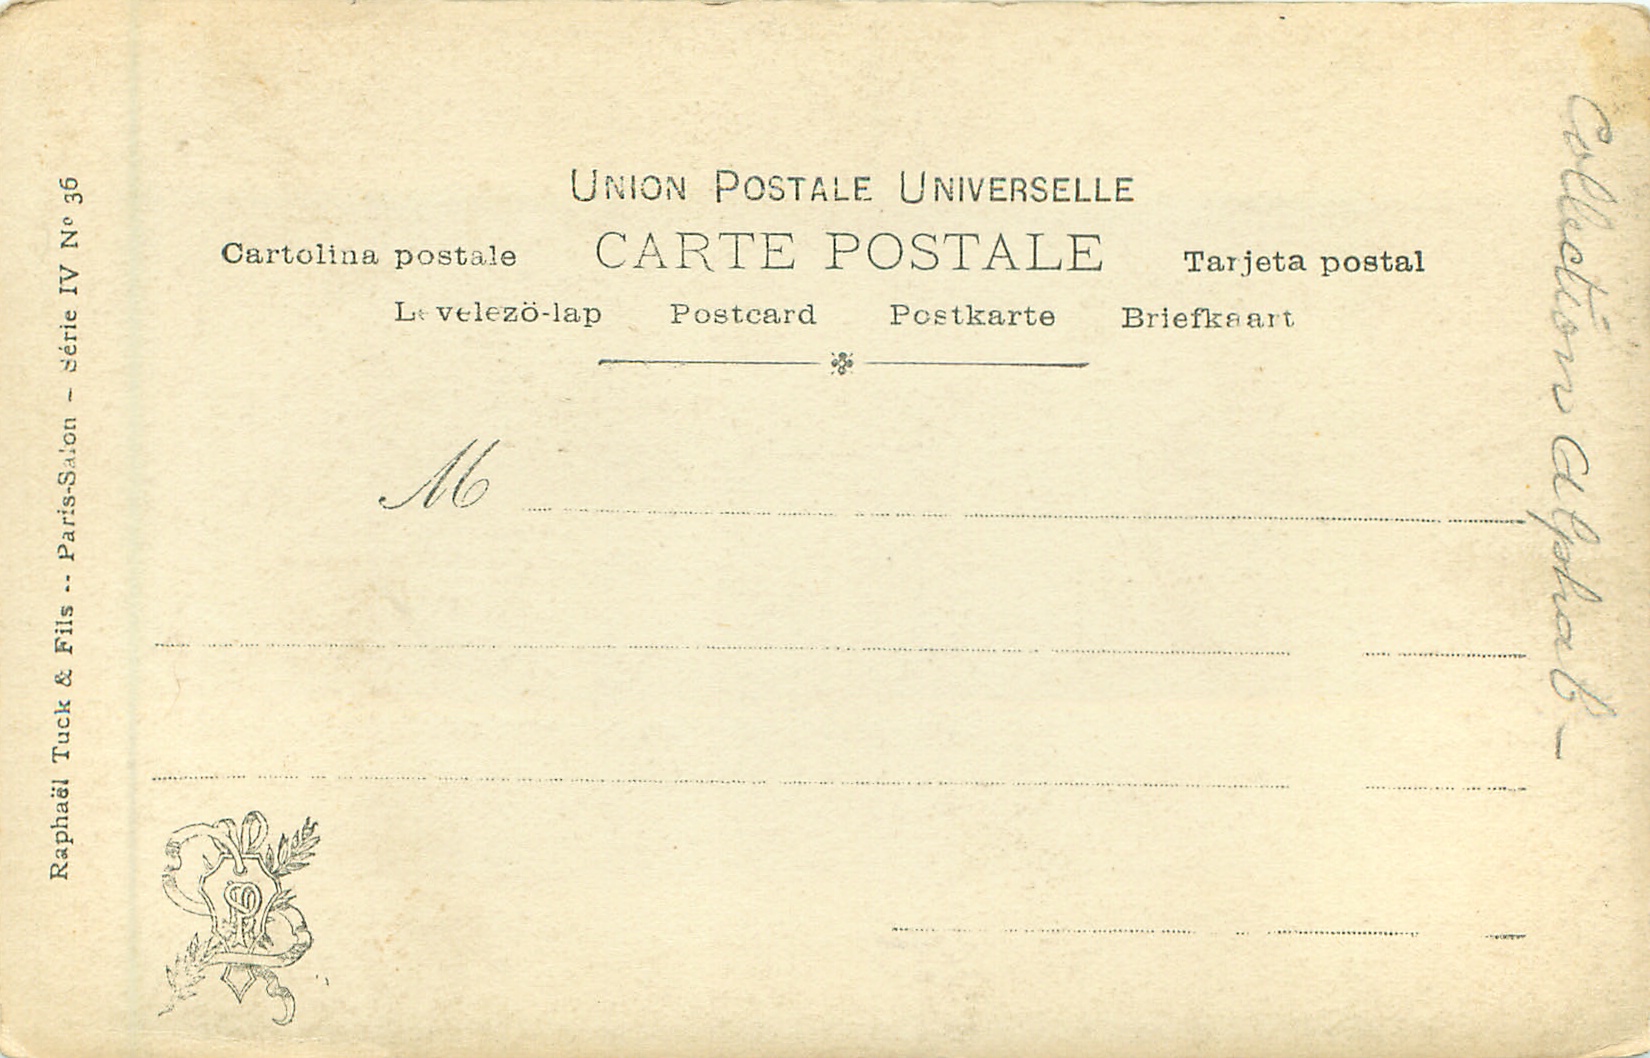 Union Postale Universelle
Cartolina postale CARTE POSTALE Tarjeta postal
Levelezö-lap Postcard Postkarte Briefkaart
M
Raphaël Tuck & Fils -- Paris-Salon - Série IV Nº 36
Collection